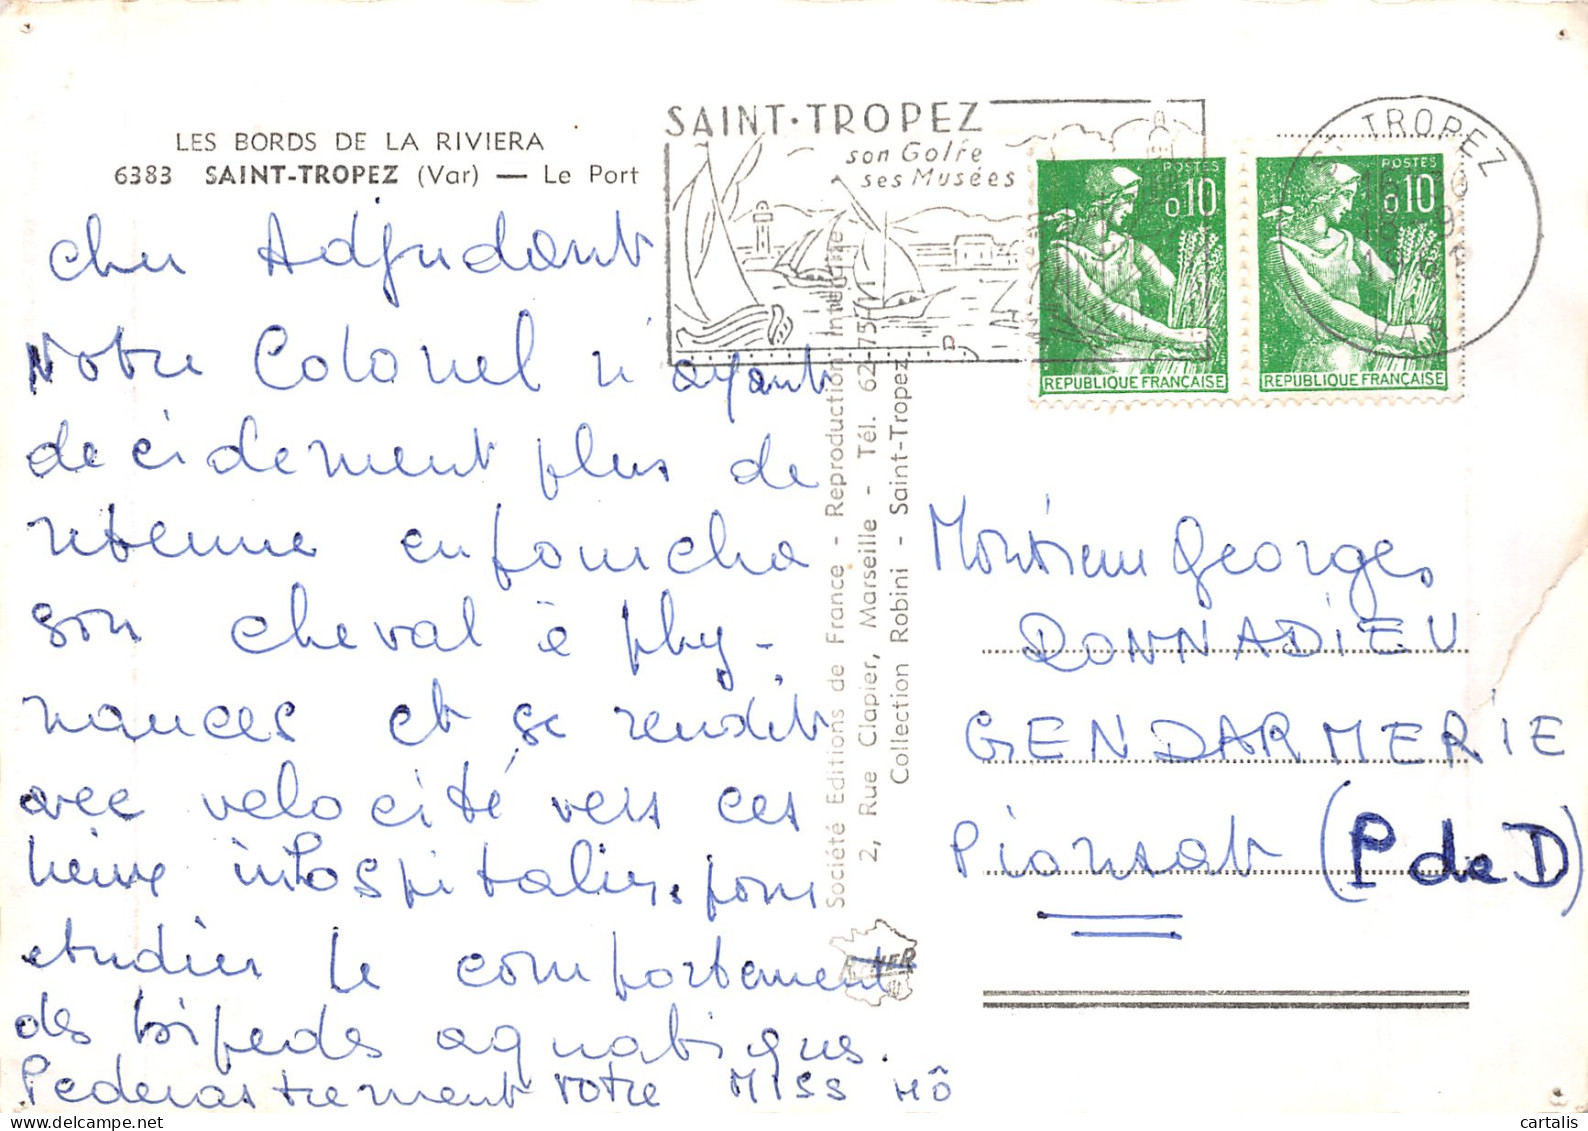 LES BORDS DE LA RIVIERA
6383 SAINT-TROPEZ (Var) — Le Port
cher Adjudant
Notre Colonel n'ayant
decidement plus de
retenue enfourcha
son cheval à phy-
nances et se rendit
avec velocité vers ces
lieux inhospitaliers pour
etudier le comportement
des bipedes aquatiques.
Pederastrement votre MISS MÔ
SAINT·TROPEZ
son Golfe
ses Musées
POSTES
0,10
REPUBLIQUE FRANÇAISE
POSTES
0,10
REPUBLIQUE FRANÇAISE
ST TROPEZ
VAR
Société Editions de France - Reproduction Interdite
2, Rue Clapier, Marseille - Tél. 62-75-11
Collection Robini - Saint-Tropez
Monsieur Georges
DONNADIEU
GENDARMERIE
Pionsat (P de D)
cartalis